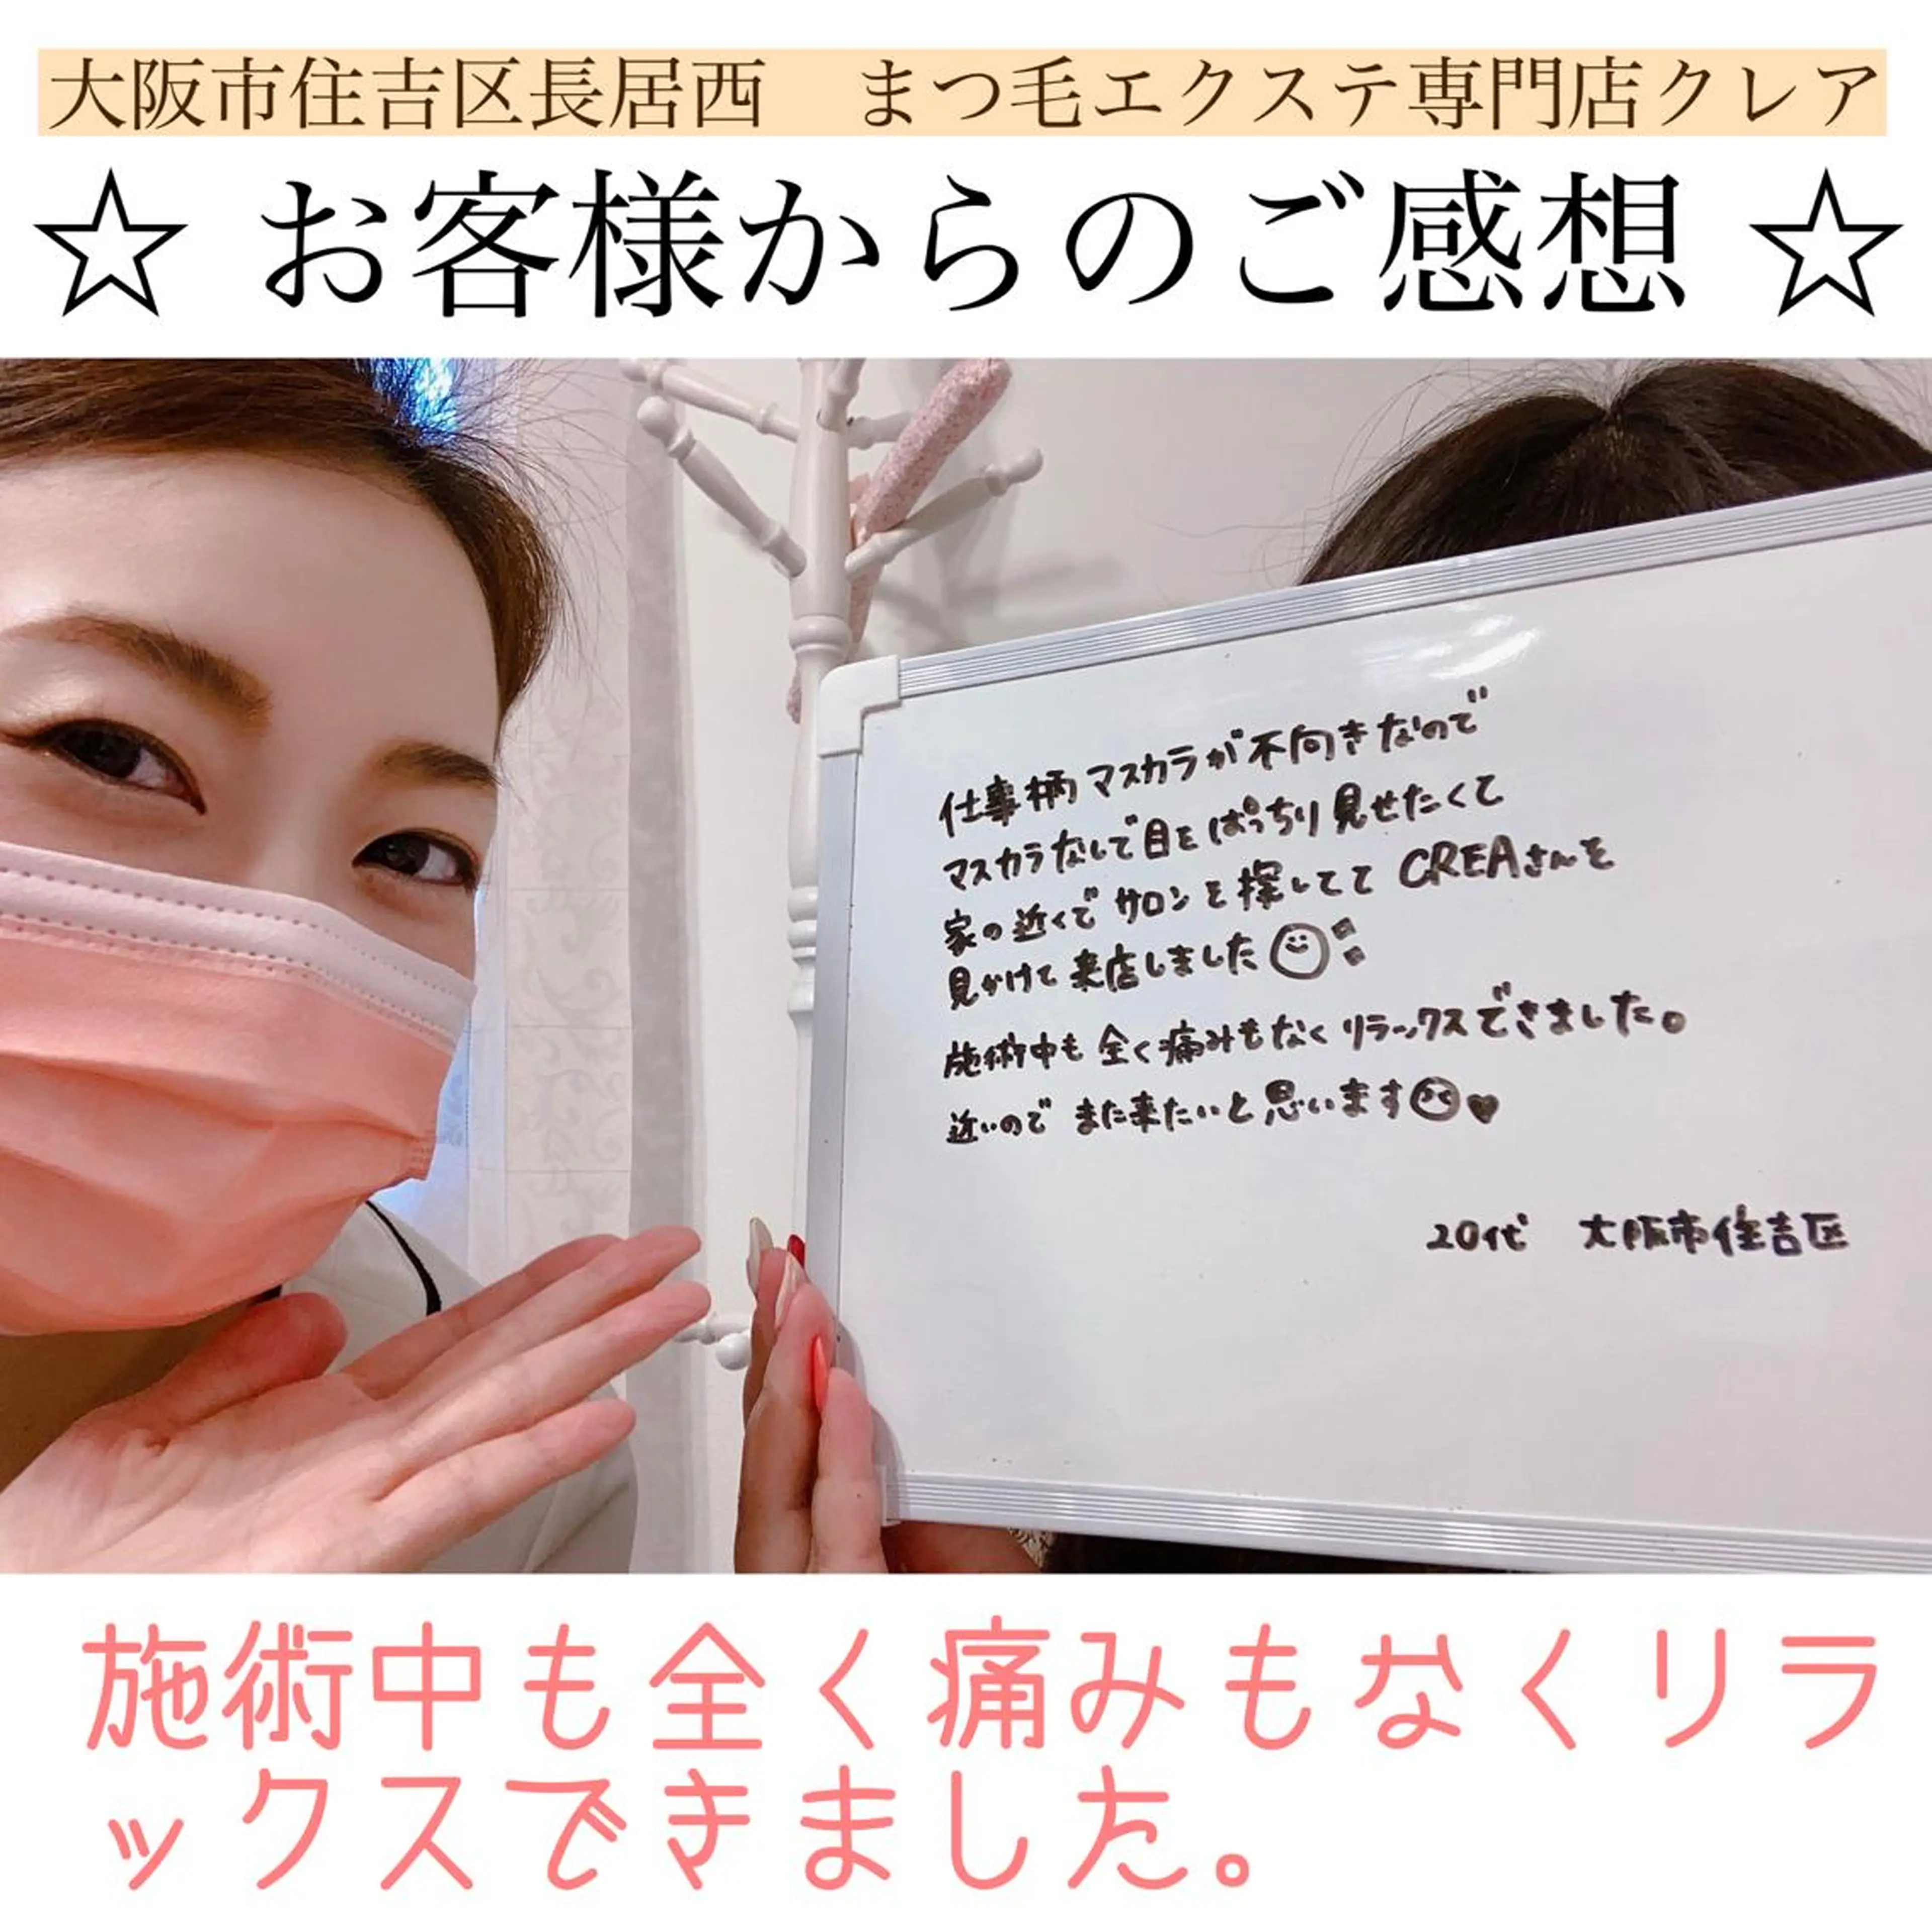 大阪市住吉区長居西　まつ毛エクステ専門店クレア
☆ お客様からのご感想 ☆
仕事柄マスカラが不向きなので
マスカラなしで目をぱっちり見せたくて
家の近くでサロンを探してて CREAさんを
見かけて来店しました
施術中も全く痛みもなくリラックスできました。
近いのでまた来たいと思います♥
20代　大阪市住吉区
施術中も全く痛みもなくリラ
ックスできました。